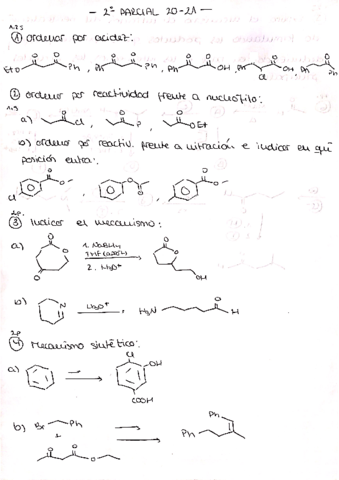 - 2º PARCIAL 20-21 -
1.25
① ordenar por acidez:
EtO Ph , Ph Ph , Ph OH , Ph Cl OH , Ph Ph
② ordenar por reactividad frente a nucleófilo:
a) Cl , , OEt
b) ordenar por reactiv. frente a nitración e indicar en qué
posición entra:
Cl , ,
2p
③ Indicar el mecanismo:
a) 1. NaBH₄
2. H₃O⁺
OH
b) N H₃O⁺ , H₂N H
2p
④ Mecanismo sintético:
a) Cl OH
COOH
b) Br Ph Ph
+ Ph